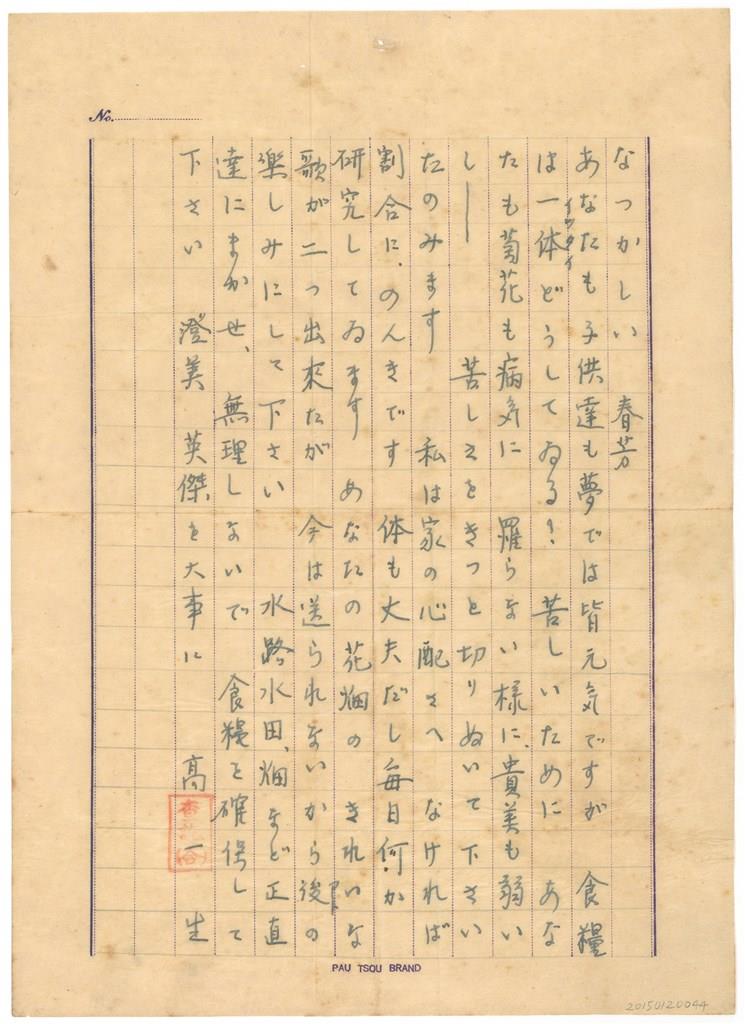 No.
なつかしい 春芳
あなたも子供達も夢では皆元気ですが 食糧
は一体どうしてゐる？ 苦しいために あな
イツタイ
たも菊花も病気に 羅らない様に、貴美も弱い
し── 苦しさをきつと切りぬいて下さい
たのみます 私は家の心配さへ なければ
割合に、のんきです 体も丈夫だし毎日何か
研究してゐます あなたの花畑の きれいな
歌が二つ出来たが 今は送られないから後の
楽しみにして下さい 水路水田、畑など正直
達にまかせ、無理しないで 食糧を確保して
下さい 澄美 英傑を大事に 高一生
PAU TSOU BRAND
20150120044